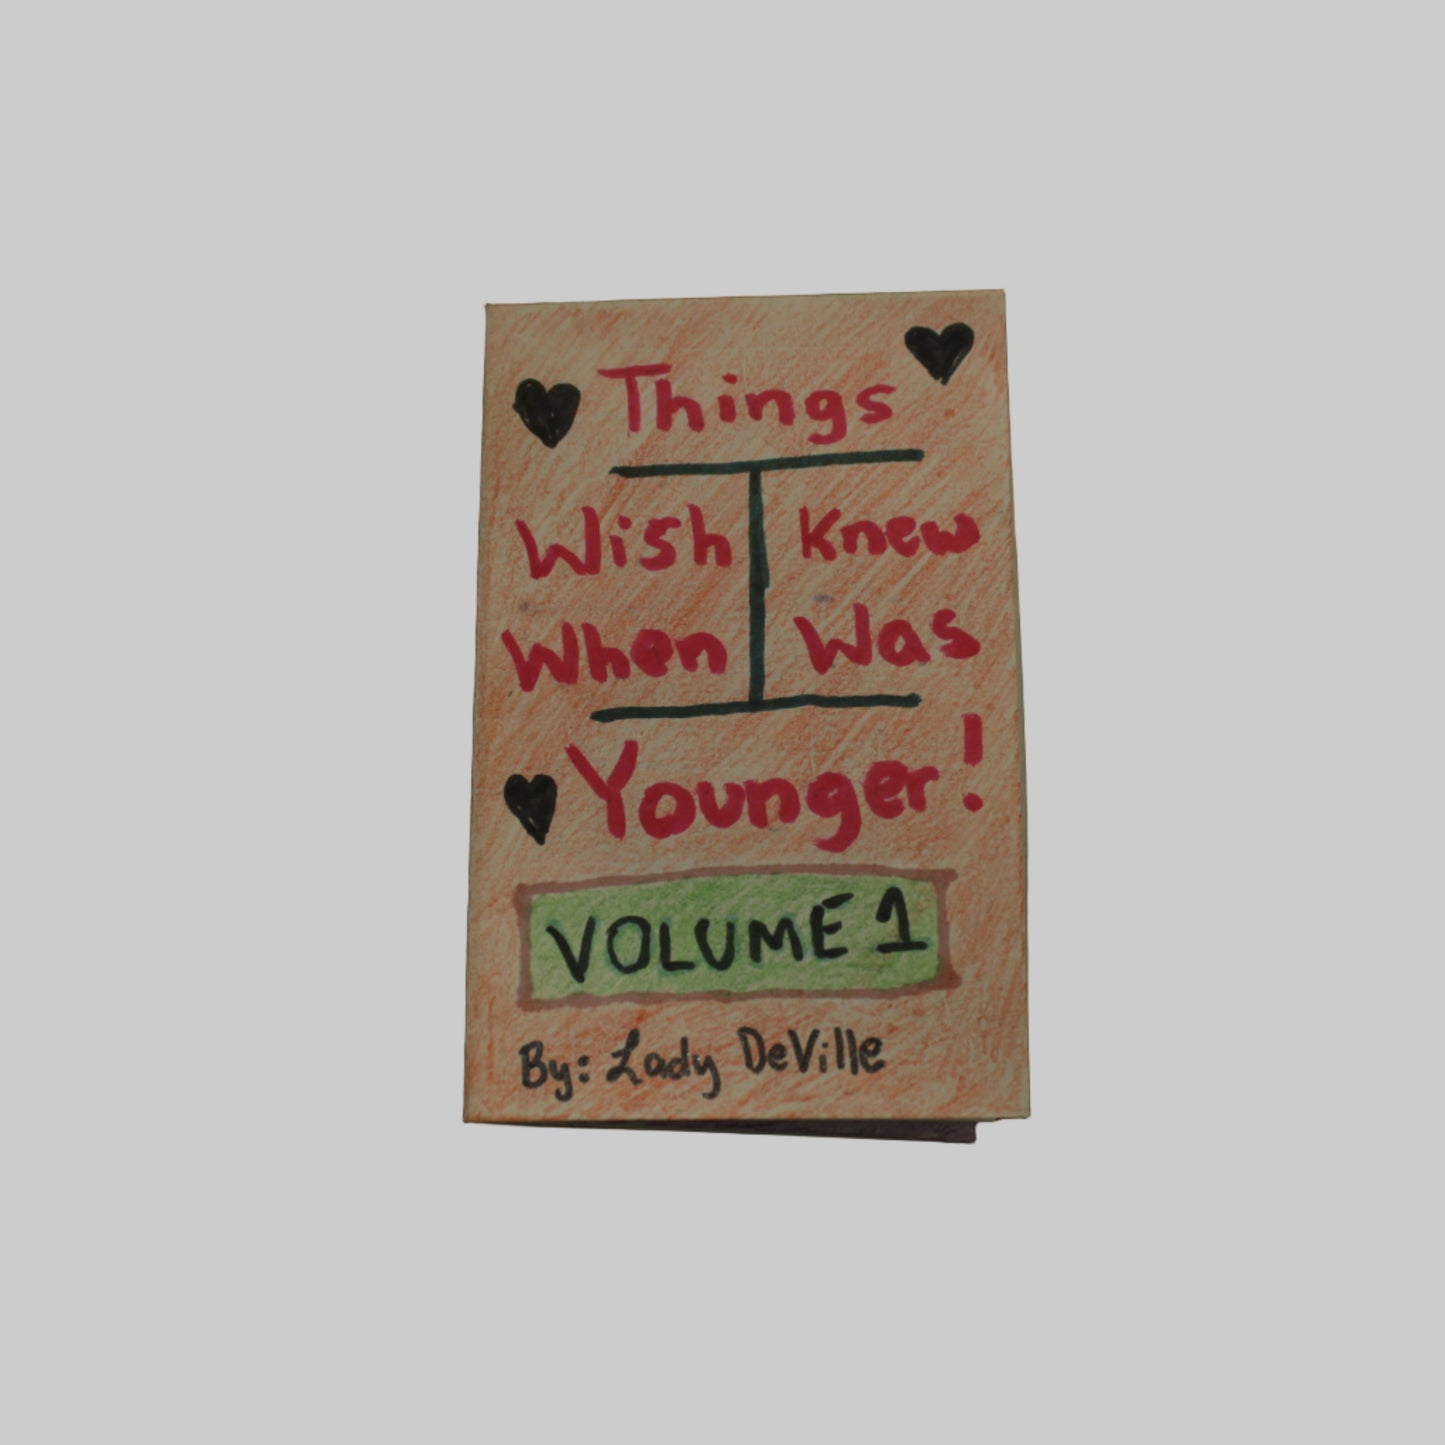 Things
I
Wish Knew
When Was
Younger!
VOLUME 1
By: Lady DeVille